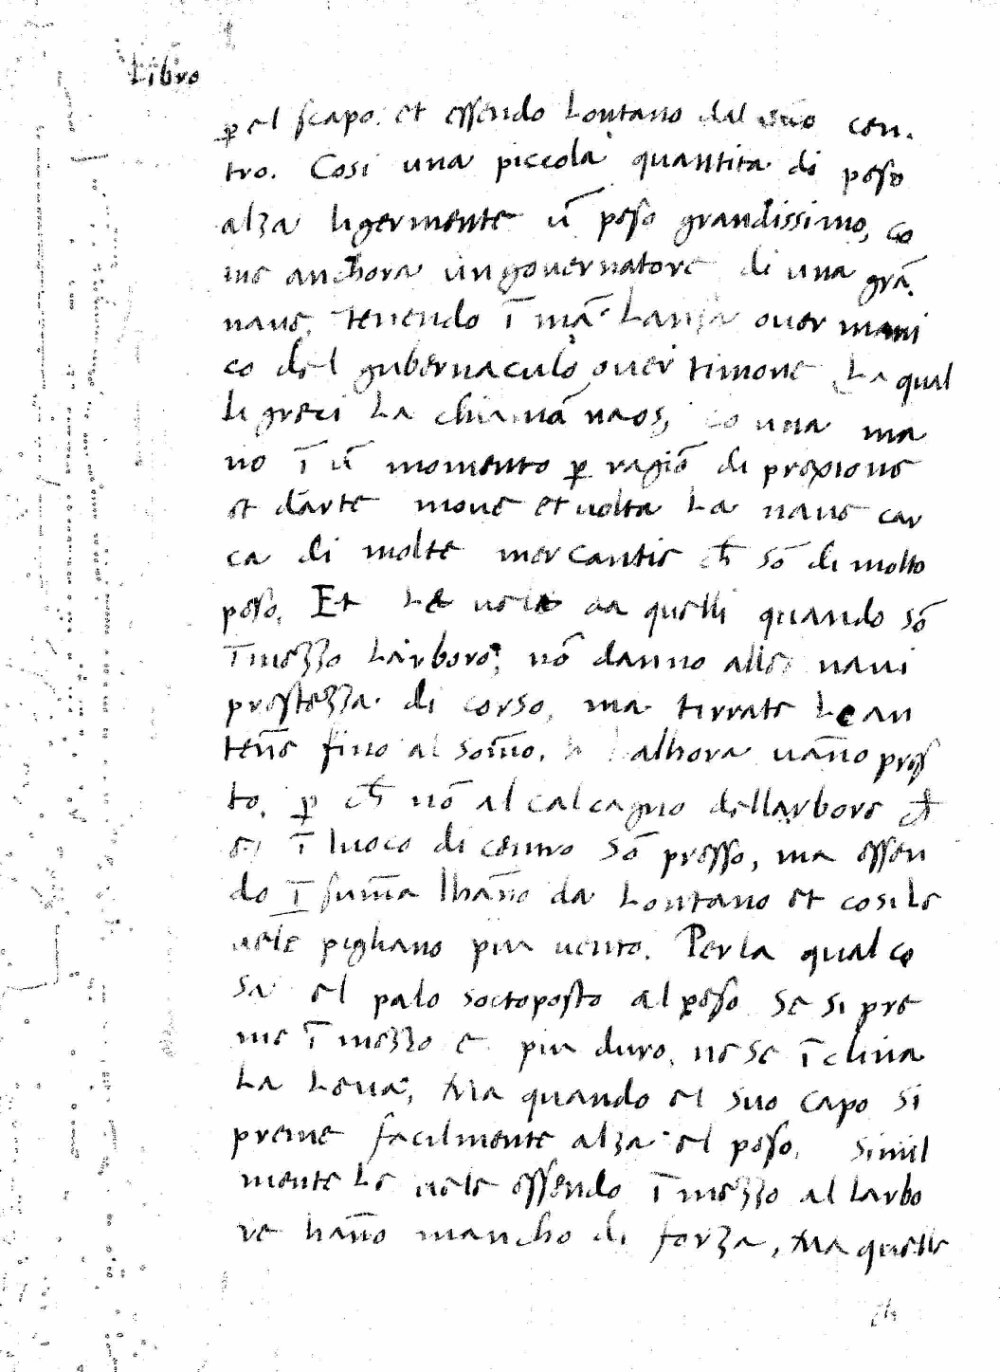 Libro
ꝑ el ſcapo. et eſſendo Lontano dal suo cen.
tro. Cosi una piccola quantita di peso
alza ligermente ū peſo grandissimo, co
me anchora un gouernatore di una grā.
naue, tenendo ī mā. Lansa ouer mani
co del gubernaculo ouer timone La qual
li greci La chiamā naos, co una ma
no ī ū momento ꝑ ragiō di preſſione
et darte moue et uolta La naue car
ca di molte mercantie ch̄ sō di molto
peſo. Et Le uele da quelli quando sō
ī mezzo Larbore, nō danno alle naui
preſtezza di corso, ma tirrate Le an
tenē fino al som̄o. alhora uan̄o preſ
to. ꝑ ch̄ nō al calcagno dellarbore ch̄
e, ī luoco di centro sō preſſo, ma eſſen
do ī sum̄a lhan̄o da Lontano et cosi Le
uele pigliano piu uento. Per la qual co
sa el palo soctopoſto al peſo se si pre
me ī mezzo e piu duro. ne se ī clina
La Leua, Ma quando el suo capo si
preme facilmente alza el peſo. Simil
mente Le uele eſſendo ī mezzo al Larbo
re han̄o mancho di forza, Ma quelle